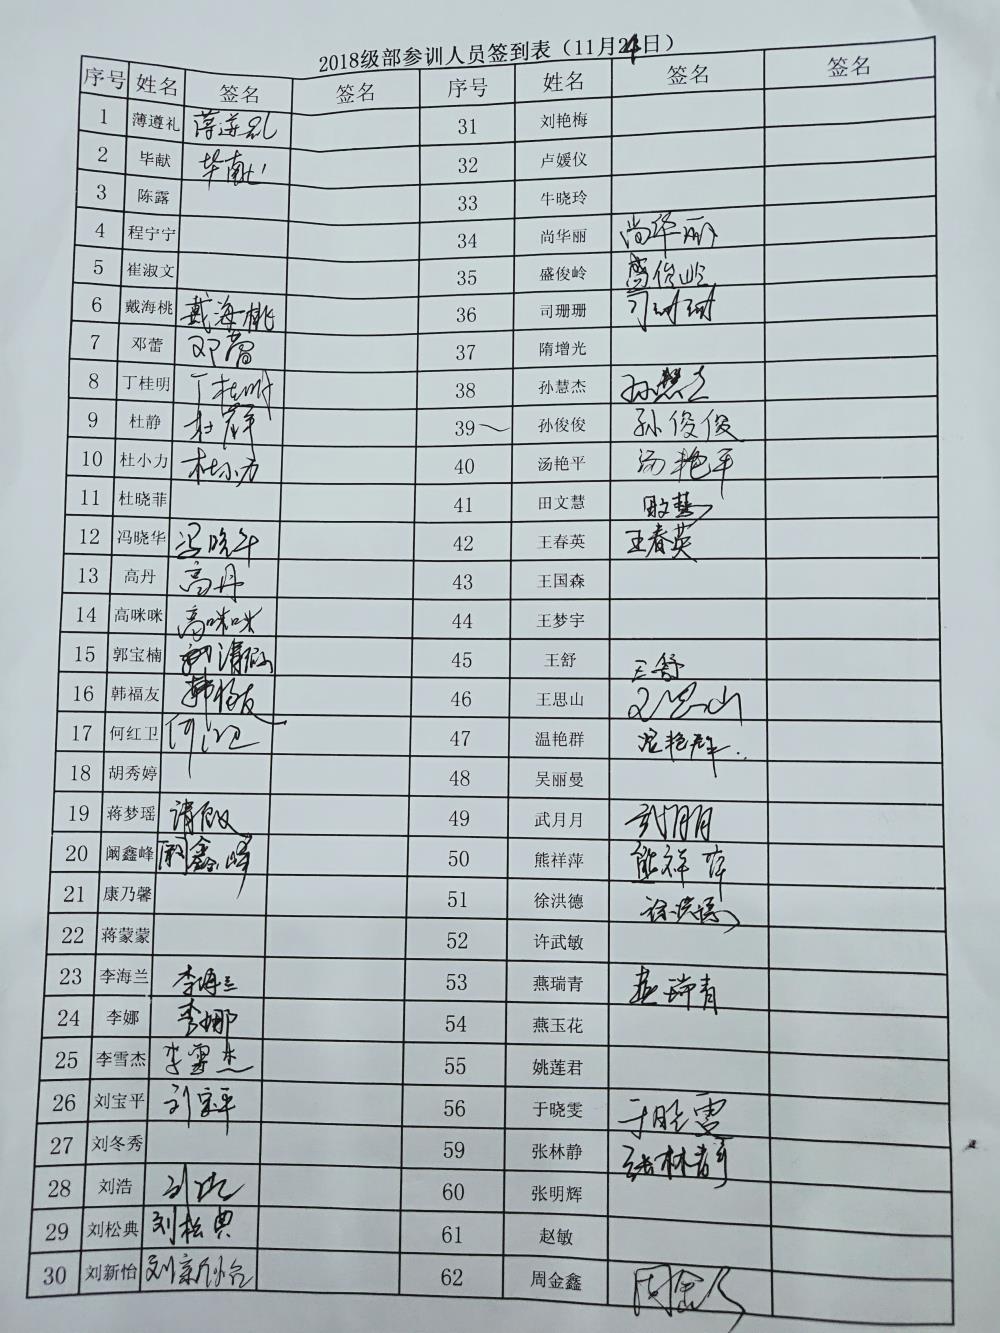 2018级部参训人员签到表（11月24日）
序号 姓名 签名 签名 序号 姓名 签名 签名
1 薄遵礼 薄遵礼 31 刘艳梅
2 毕献 毕献 32 卢媛仪
3 陈露 33 牛晓玲
4 程宁宁 34 尚华丽 尚华丽
5 崔淑文 35 盛俊岭 盛俊岭
6 戴海桃 戴海桃 36 司珊珊 司珊珊
7 邓蕾 邓蕾 37 隋增光
8 丁桂明 丁桂明 38 孙慧杰 孙慧杰
9 杜静 杜静 39 孙俊俊 孙俊俊
10 杜小力 杜小力 40 汤艳平 汤艳平
11 杜晓菲 41 田文慧 田文慧
12 冯晓华 冯晓华 42 王春英 王春英
13 高丹 高丹 43 王国森
14 高咪咪 高咪咪 44 王梦宇
15 郭宝楠 45 王舒 王舒
16 韩福友 韩福友 46 王思山 王思山
17 何红卫 何红卫 47 温艳群 温艳群
18 胡秀婷 48 吴丽曼
19 蒋梦瑶 请假 49 武月月 武月月
20 阚鑫峰 阚鑫峰 50 熊祥萍 熊祥萍
21 康乃馨 51 徐洪德 徐洪德
22 蒋蒙蒙 52 许武敏
23 李海兰 李海兰 53 燕瑞青 燕瑞青
24 李娜 李娜 54 燕玉花
25 李雪杰 李雪杰 55 姚莲君
26 刘宝平 刘宝平 56 于晓雯 于晓雯
27 刘冬秀 59 张林静 张林静
28 刘浩 刘浩 60 张明辉
29 刘松典 刘松典 61 赵敏
30 刘新怡 刘新怡 62 周金鑫 周金鑫